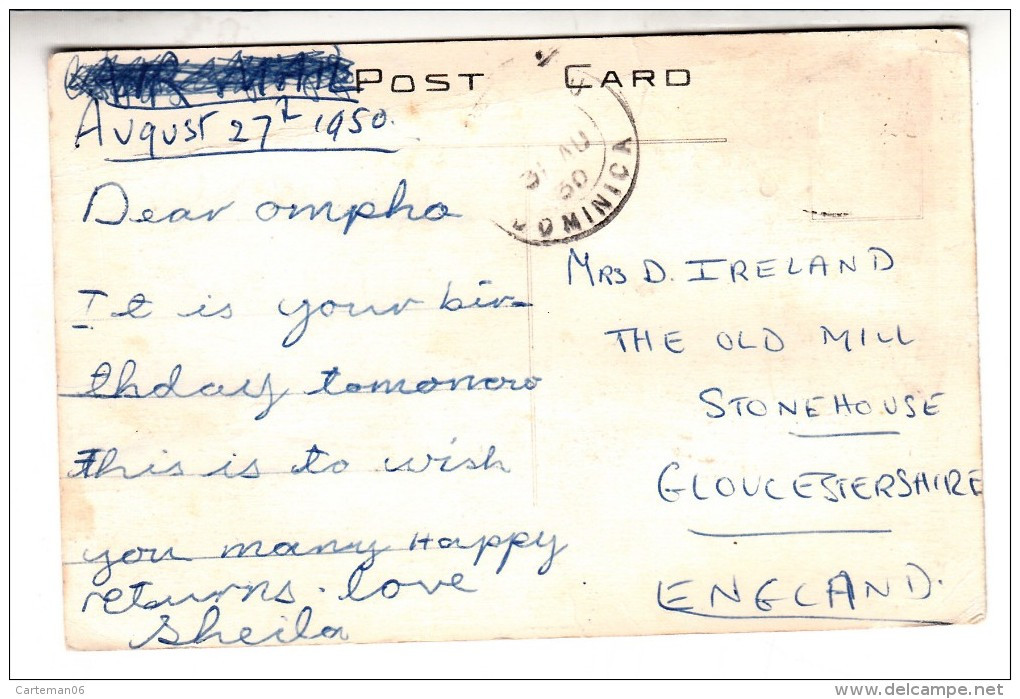 AIR MAIL
POST CARD
August 27th 1950.
31 AU
50
DOMINICA
Dear ompha
It is your bir-
thday tomorrow
this is to wish
you many Happy
returns. love
Sheila
MRS D. IRELAND
THE OLD MILL
STONEHOUSE
GLOUCESTERSHIRE
ENGLAND.
Carteman06
delcampe.net